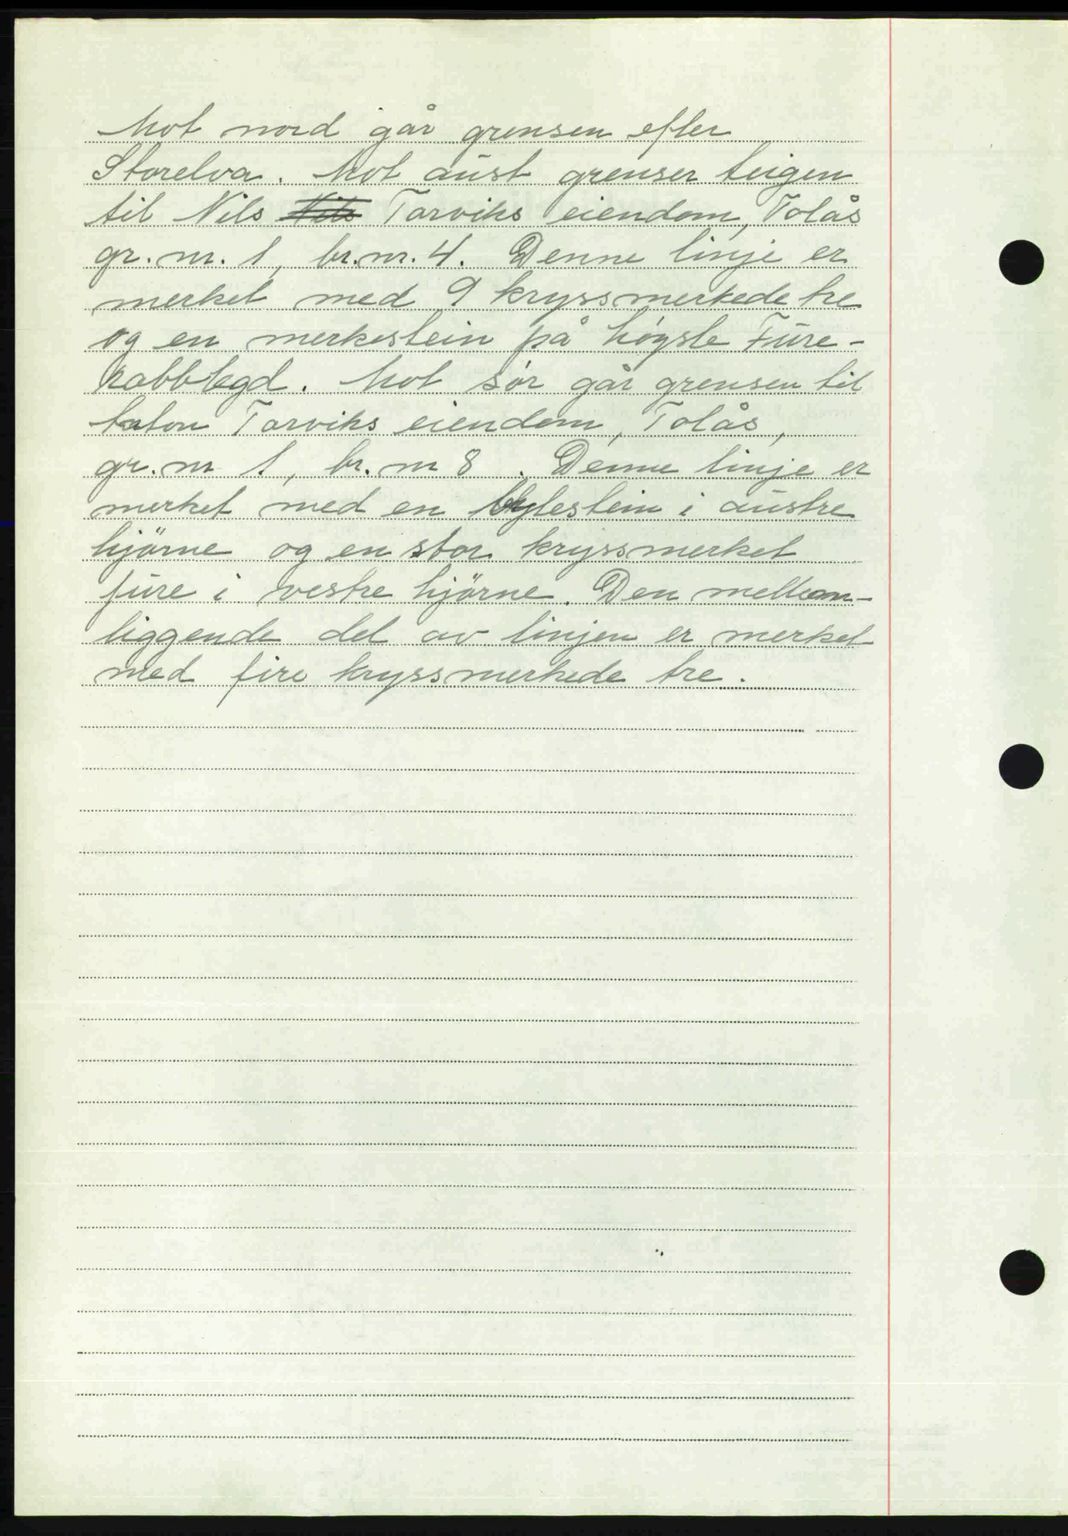 Mot nord går grensen efter
Storelva. Mot aust grenser teigen
til Nils Nils Tarviks eiendom, Tolås
gr. nr. 1, br. nr. 4. Denne linje er
merket med 9 kryssmerkede tre
og en merkestein på högste Fure-
kabblegd. Mot sör går grensen til
Tarviks eiendom, Tolås,
gr. nr 1, br. nr 8. Denne linje er
merket med en bytestein i austre
hjörne og en stor kryssmerket
fure i vestre hjörne. Den mellom-
liggende del av linjen er merket
med fire kryssmerkede tre.